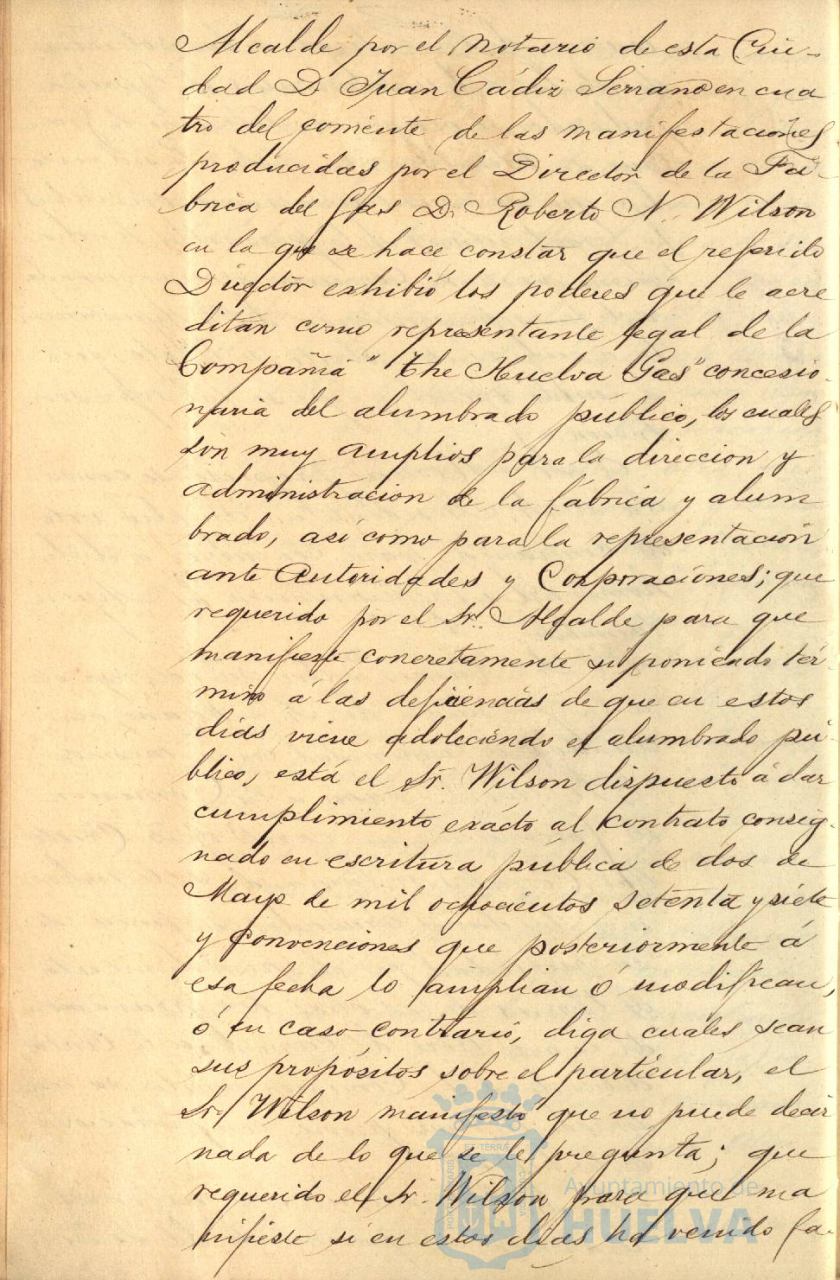 Alcalde por el Notario de esta Ciu-
dad D. Juan Cádiz Serrano en cua
tro del corriente de las manifestaciones
producidas por el Director de la Fá-
brica del Gas D. Roberto N. Wilson
en la que se hace constar que el referido
Director exhibió los poderes que le acre
ditan como representante legal de la
Compañia "The Huelva Gas" concesio-
naria del alumbrado público, los cuales
son muy amplios para la direccion y
administracion de la fábrica y alum
brado, así como para la representación
ante Autoridades y Corporaciones; que
requerido por el Sr. Alcalde para que
manifieste concretamente si poniendo tér-
mino á las deficiencias de que en estos
dias viene adoleciendo el alumbrado pú-
blico, está el Sr. Wilson dispuesto á dar
cumplimiento exácto al contrato consig-
nado en escritura pública de dos de
Mayo de mil ochocientos setenta y siete
y convenciones que posteriormente á
esa fecha lo amplian ó modifican,
ó en caso contrario, diga cuales sean
sus propósitos sobre el particular, el
Sr. Wilson manifestó que no puede decir
nada de lo que se le pregunta; que
requerido el Sr. Wilson para que ma
nifieste si en estos dias ha venido fa-
Ayuntamiento de
HUELVA